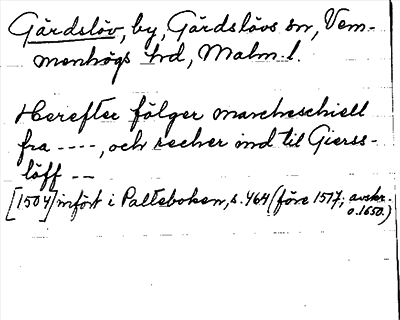 Gärdslöv, by, Gärdslövs sn, Vem-
menhögs hd, Malm. l.
Herefter fölger marcheschiell
fra ----, och recher ind til Gierss-
löff --
[1504] infört i Palteboken, s. 464 (före 1517; avskr.
o. 1650.)